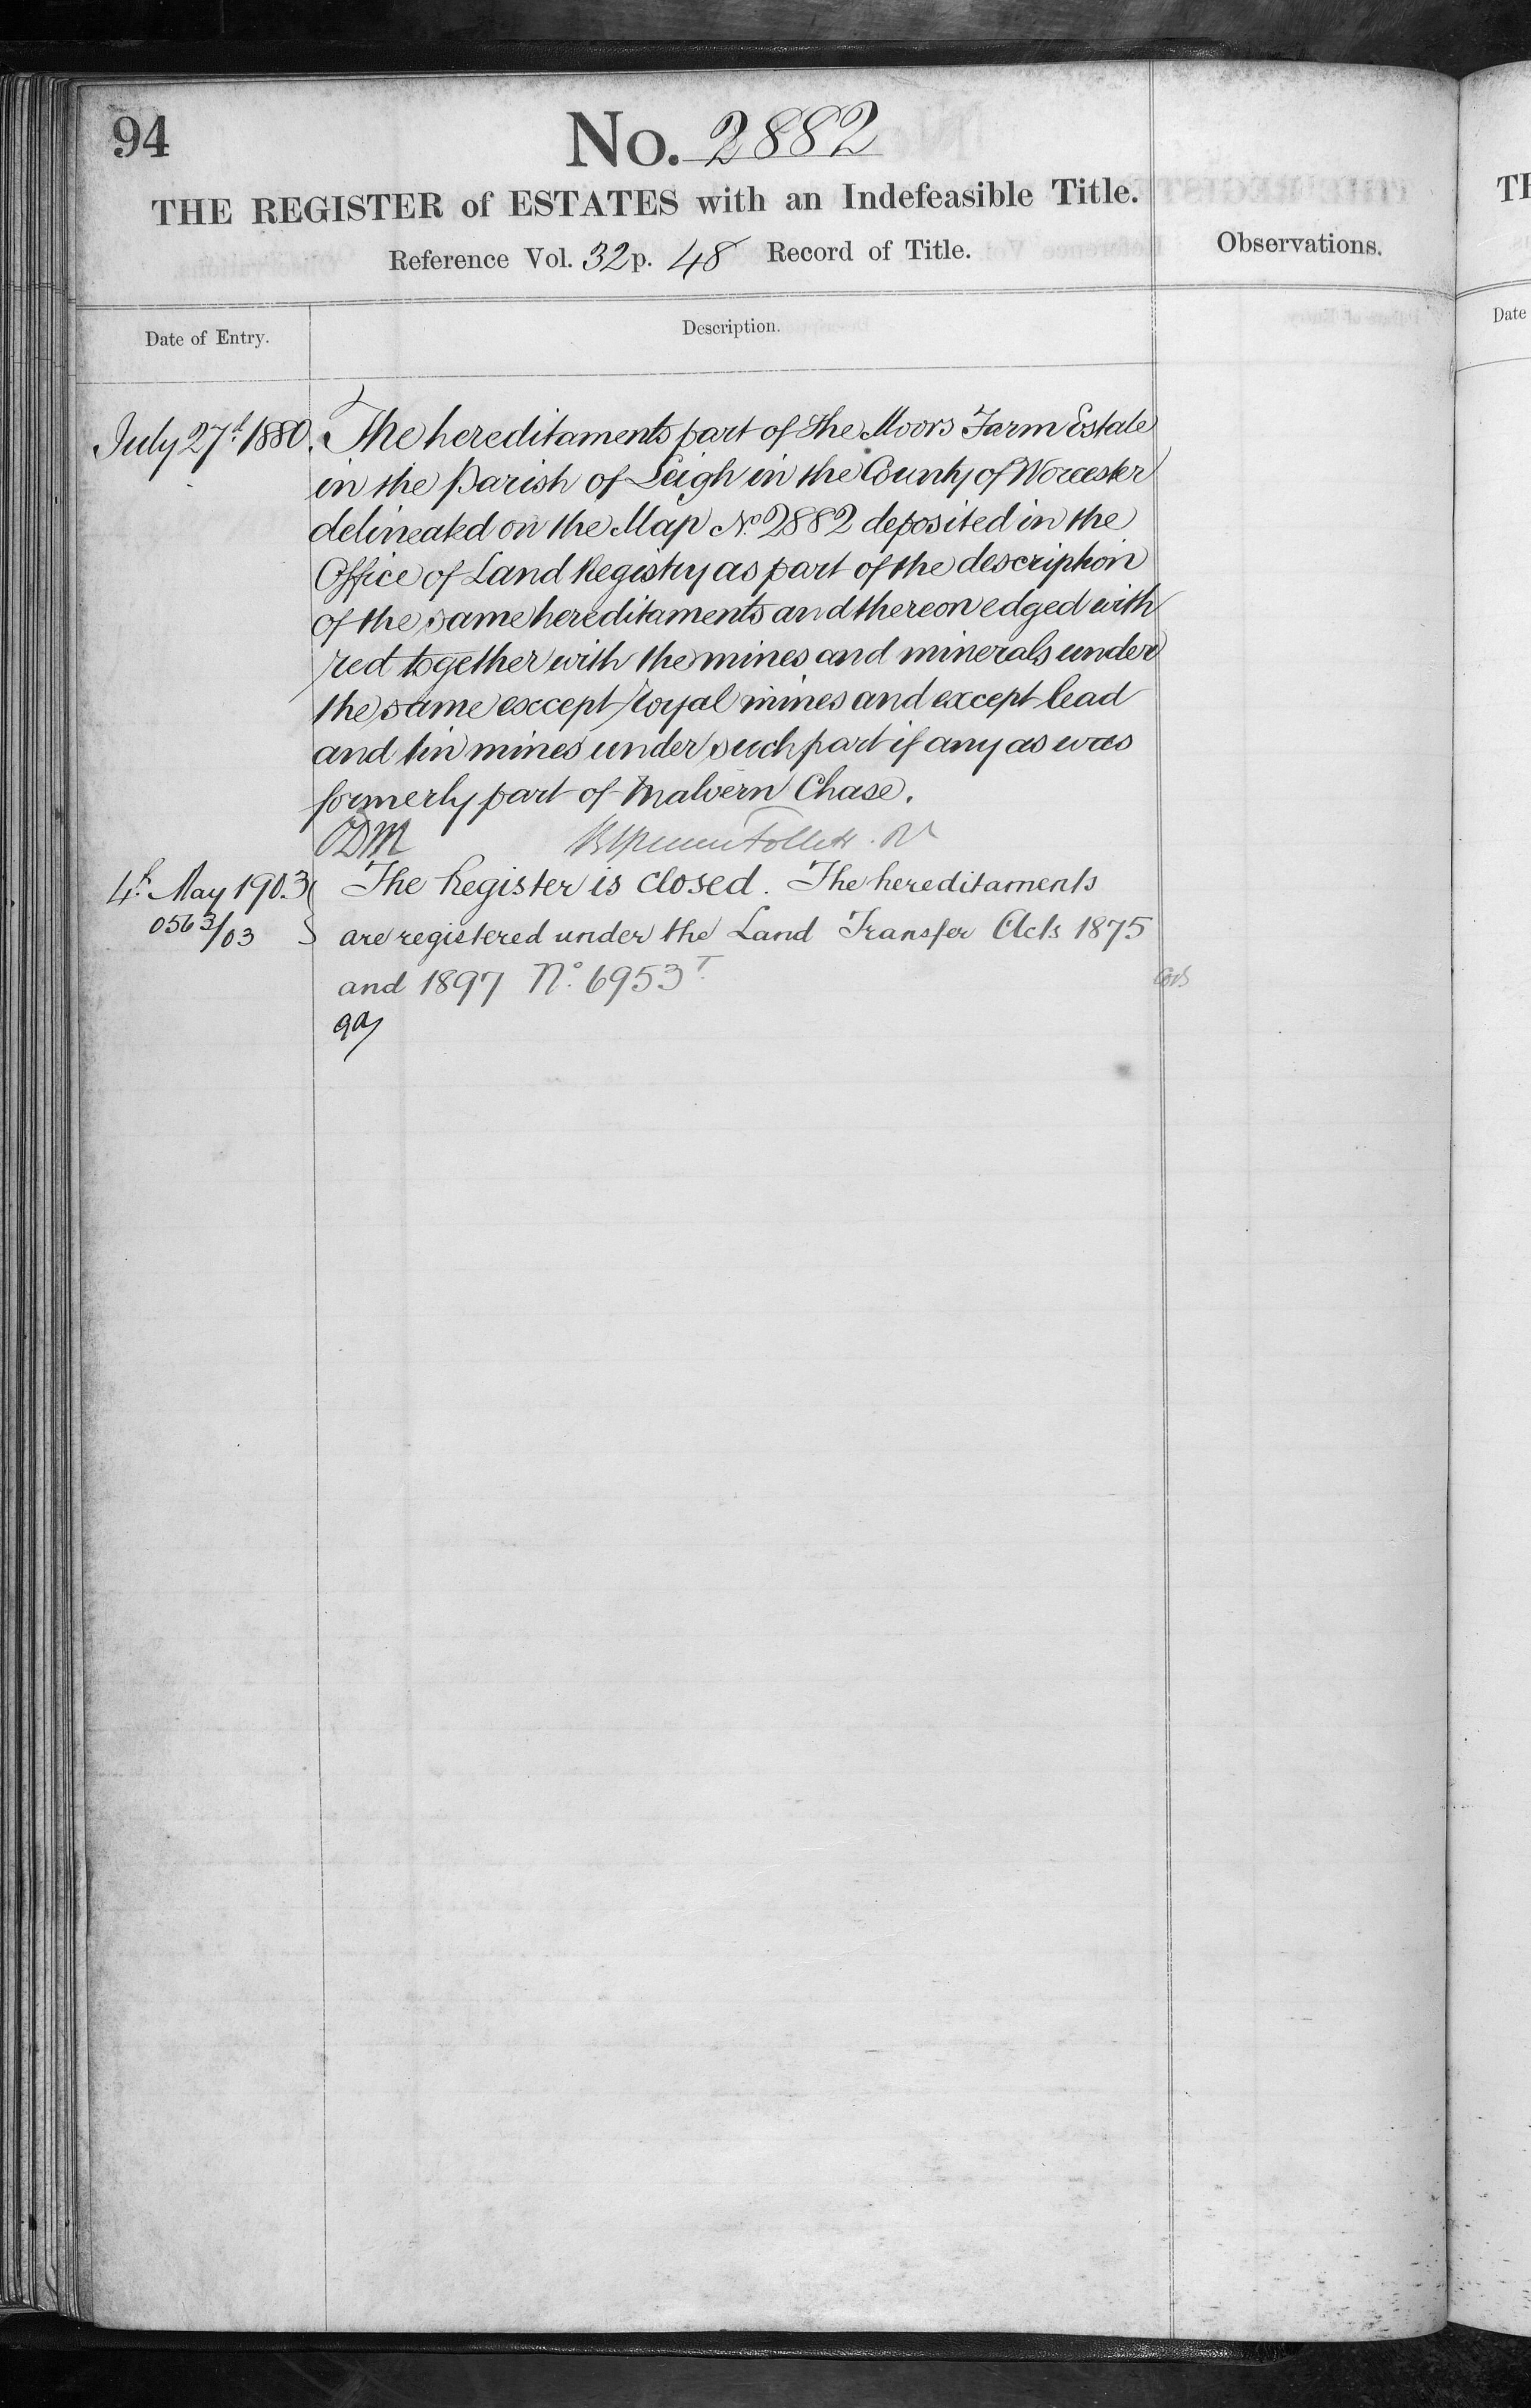 94
No. 2882
THE REGISTER of ESTATES with an Indefeasible Title.
Reference Vol. 32 p. 48 Record of Title.
Observations.
Date of Entry.
Description.
July 27th 1880. The hereditaments part of The Moors Farm Estate
in the Parish of Leigh in the County of Worcester
delineated on the Map No. 2882 deposited in the
Office of Land Registry as part of the description
of the same hereditaments and thereon edged with
red together with the mines and minerals under
the same except royal mines and except lead
and tin mines under such part if any as was
formerly part of Malvern Chase.
ODM Follett
4th May 1903 The Register is closed. The hereditaments
0563/03 are registered under the Land Transfer Acts 1875
and 1897 No. 6953 T.
TH
Date